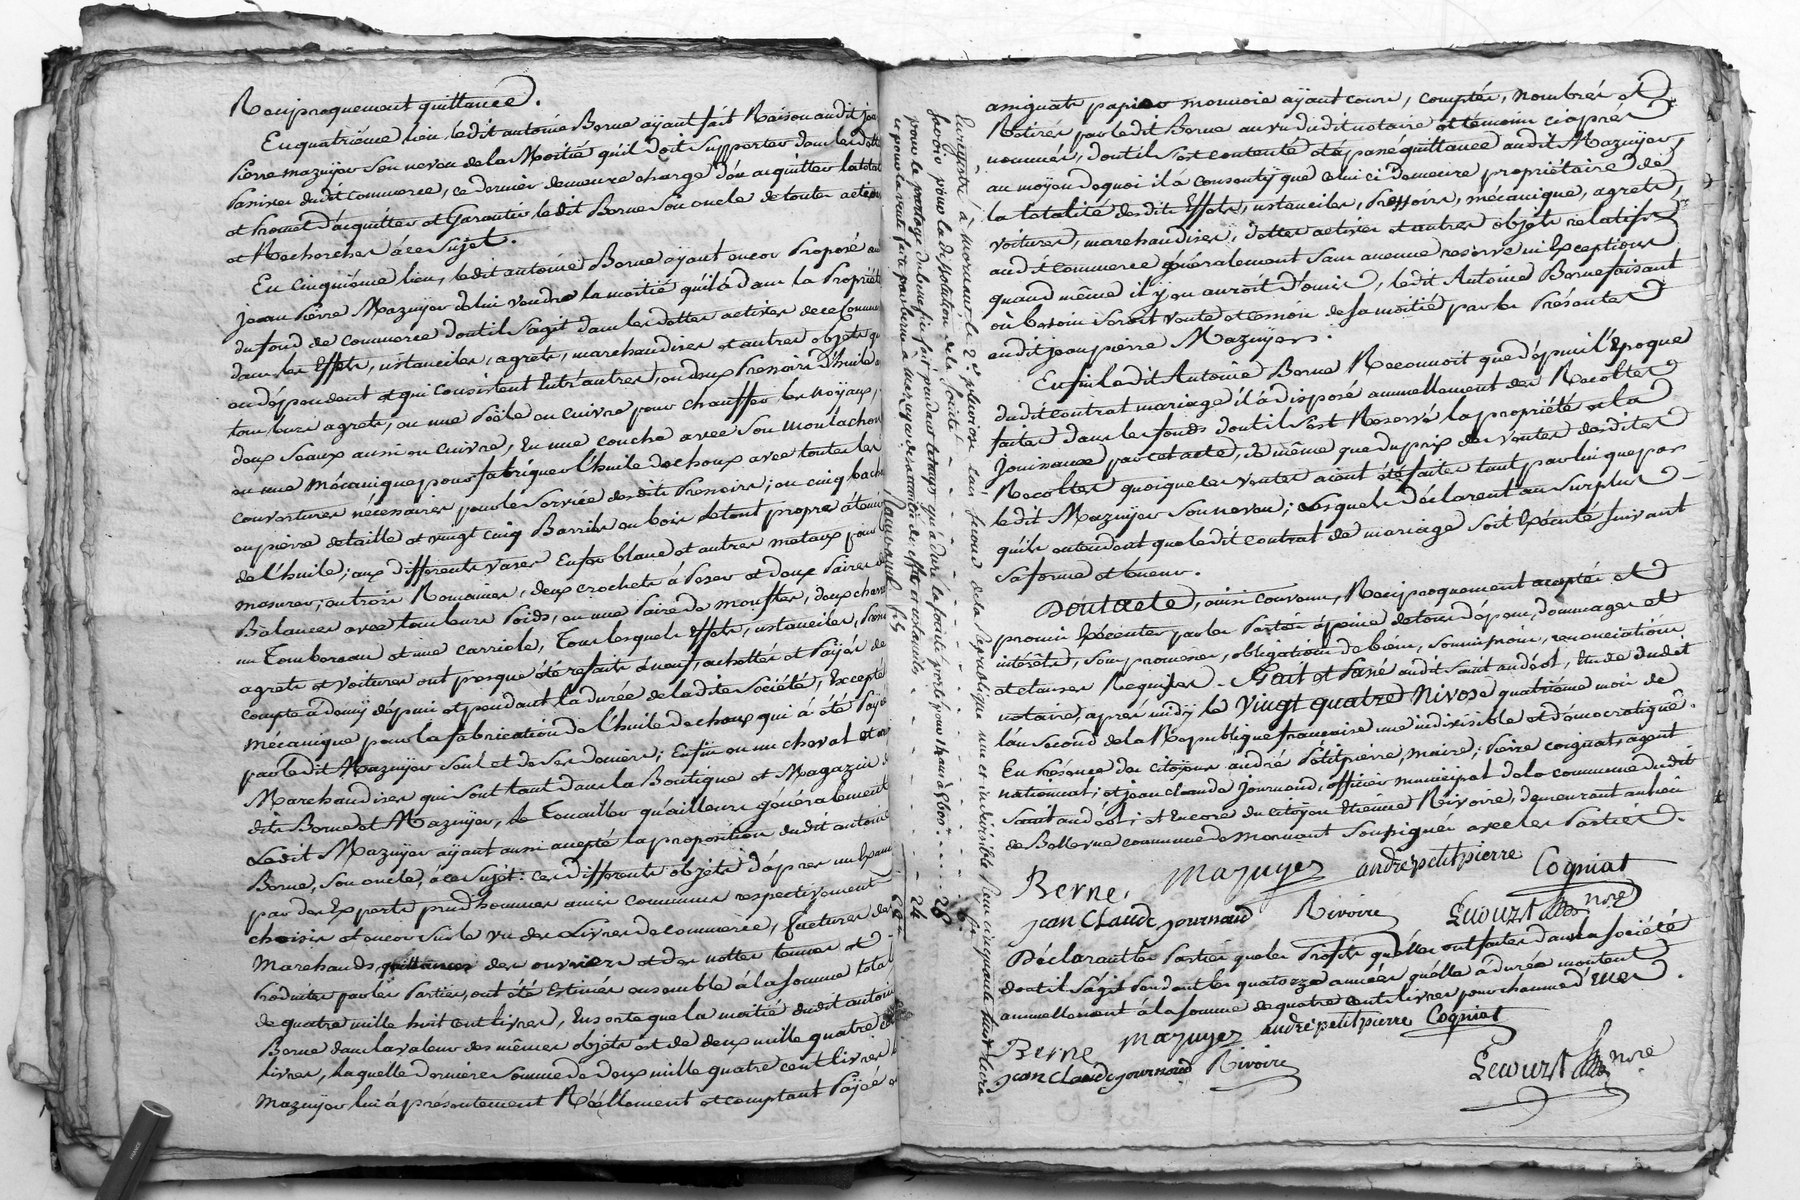 Reciproquement quittance.
En quatrième lieu ledit antoine Berne ayant fait Raison audit jean
Pierre mazuyer Son neveu de la Moitié qu'il doit Supporter dans les dettes
Passives dudit commerce, ce dernier demeure chargé d'en acquitter la totalité
et Promet d'acquitter et Garantir ledit Berne Son oncle de toutes actions
et Recherches à ce Sujet.
En Cinquième lieu, ledit antoine Berne ayant encor Proposé au
Jean Pierre Mazuyer de lui vendre la moitié qu'il a dans la Propriété
du fond de commerce dont il S'agit dans les dettes actives de ce Commerce
dans les Effets, ustanciles, agrets, marchandises et autres objets qui
en dépendent et qui consistent Entr'autres, en deux Pressoirs d'huile
tous leurs agrets, en une Poële en cuivre pour chauffer les noyaux,
deux Seaux aussi en cuivre, En une couche avec Son
en une Mécanique pour fabriquer l'huile de choux avec toutes les
couvertures nécessaires pour le Service desdits Pressoirs, en cinq bachats
en pierre de taille et vingt cinq Barrils en bois le tout propre à tenir
de l'huile; aux différents vases En fer blanc et autres metaux pour
mesurer; en trois Romaines, deux crochets à Peser et deux Paires de
Balances avec tous leurs Poids, en une Paire de moufles, deux chars
un Tombereau et une carriole, Tous lesquels Effets, ustanciles, Pressoirs
agrets et voitures ont presque été refaits à neuf, achettés et Payés de
compte à demÿ depuis et pendant la durée de la dite Société, Excepté
mécanique pour la fabrication de l'huile de choux qui à été Payée
par ledit Mazuyer Seul et de Ses deniers; Enfin en un cheval et en
Marchandises qui Sont tant dans la Boutique et Magazin
dits Berne et Mazuyer, le Touaillon qu'ailleurs généralement
Ledit Mazuyer ayant aussi accepté la proposition dudit antoine
Berne, Son oncle, à ce Sujet: ces différents objets d'après un Examen
par des Experts prud'hommes amis communs respectivement
choisis et encor Sur le vu des Livres de commerce, factures des
Marchands quittances des ouvriers et des nottes tenues et
Produites par les Parties, ont été Estimés ensemble à la Somme totale
de quatre mille huit cent livres, Ensorte que la moitié dudit antoine
Berne dans la valeur des mêmes objets est de deux mille quatre cent
livres, laquelle derniere Somme de deux mille quatre cent livres
Mazuyer lui à présentement Réellement et comptant Payé en
Enregistré à mornant le 2d pluviose l'an Second de la Republique une et indivisible Reçu cinquante huit livres
Savoir pour la dissolution de la Société 6
pour le partage du benefice fait pendant le temps qu'a duré la Société porté pour chacun à 5600 28
et pour la vente faite par berne à mazuyer de sa moitié des effets et ustanciles 24
58
assignats papier monnoie ayant cours, comptés, nombrés et
Retirés par ledit Berne au vu dudit notaire et témoins ci après
nommés, dont il S'est contenté et à passé quittance audit Mazuyer
au moyen de quoi il a consentÿ que celui ci Demeure propriétaire de
la totalité desdits Effets, ustanciles, Pressoirs, mécanique, agrets,
voitures, marchandises, dettes actives et autres objets relatifs
audit commerce généralement Sans aucune reserve ni Exceptions
quand même il ÿ en auroit d'omis, ledit Antoine Berne faisant
où besoin Seroit vente et cession de Sa moitié par les Présentes
audit jean pierre Mazuyer.
Enfin ledit Antoine Berne Reconnoit que depuis l'époque
dudit contrat mariage il à disposé annuellement des Recoltes
faites dans les fonds dont il S'est Reservé la propriété et la
Jouissance par cet acte, de même que du prix des ventes desdites
Recoltes quoique les ventes aient été faites tant par lui que par
ledit Mazuyer Son neveu; Lesquels déclarent au Surplus
qu'ils entendent que ledit contrat de mariage Soit Exécuté Suivant
Sa forme et teneur.
Dont acte, ainsi convenu, Réciproquement accepté et
promis Exécuter par les Parties à peine de tous dépens, dommages et
intérêts, Sous promesses, obligations de biens, Soumissions, renonciations
et clauses Requises. Fait et Passé audit Saint andéol, Etude dudit
notaire, après midÿ le vingt quatre Nivose quatrième mois de
l'an Second de la République francaise une indivisible et démocratique.
En Présence des citoyens andré Petitpierre, maire; Pierre cogniat, agent
national; et jean claude Journoud, officier municipal de la commune dudit
Saint andéol; et Encore du citoyen Etienne Rivoire, demeurant au lieu
de Bellevue commune de Mornant Soussignés avec les Parties.
Berne, Mazuyer andré petitpierre Cogniat
jean Claude journoud Rivoire Lecourt Nore
Déclarant les Parties que les Profits qu'elles ont faites dans la Société
dont il S'agit Pendant les quatorze années qu'elle à durée montent
annuellement à la Somme de quatre cents livres pour chacune d'elles.
Berne Mazuyer andré petitpierre Cogniat
jean Claude journoud Rivoire
Lecourt nore